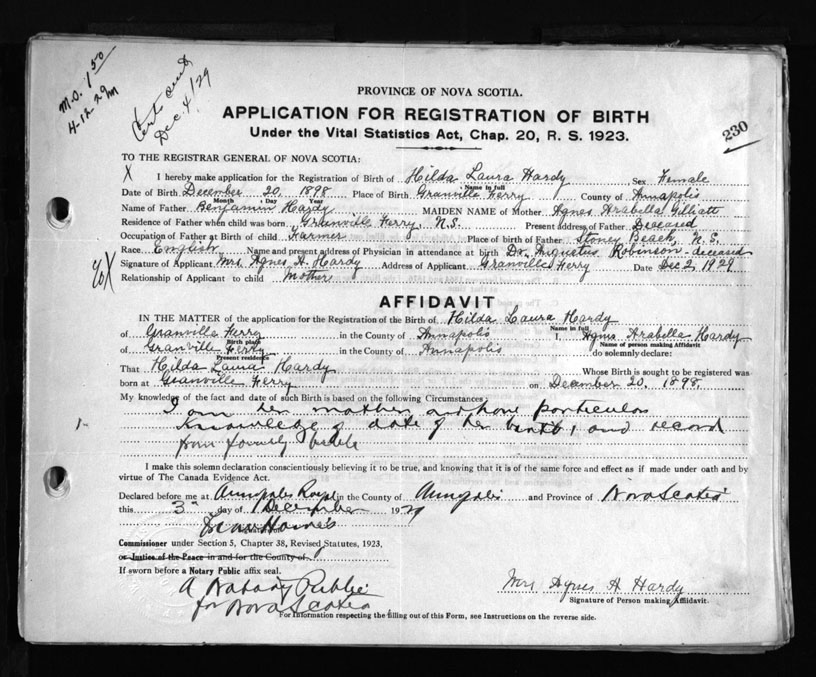 M.O. 1.50
4-12-29
Cert. sent
Dec. 4/29
230
PROVINCE OF NOVA SCOTIA.
APPLICATION FOR REGISTRATION OF BIRTH
Under the Vital Statistics Act, Chap. 20, R. S. 1923.
TO THE REGISTRAR GENERAL OF NOVA SCOTIA:
X I hereby make application for the Registration of Birth of Hilda Laura Hardy Sex Female
Name in full
Date of Birth December 20, 1898 Place of Birth Granville Ferry County of Annapolis
Month Day Year
Name of Father Benjamin Hardy MAIDEN NAME of Mother Agnes Arabella Gilliatt
Residence of Father when child was born Granville Ferry, N.S. Present address of Father Deceased
Occupation of Father at Birth of child Farmer Place of birth of Father Stones Beach, N.S.
Race English Name and present address of Physician in attendance at birth Dr. Augustus Robinson deceased
Signature of Applicant Mrs. Agnes A. Hardy Address of Applicant Granville Ferry Date Dec 2, 1929
Relationship of Applicant to child Mother
AFFIDAVIT
IN THE MATTER of the application for the Registration of the Birth of Hilda Laura Hardy
Name in full
of Granville Ferry in the County of Annapolis I, Agnes Arabella Hardy
Birth place Name of person making Affidavit
of Granville Ferry in the County of Annapolis do solemnly declare:
Present residence
That Hilda Laura Hardy Whose Birth is sought to be registered was
born at Granville Ferry on December 20, 1898.
My knowledge of the fact and date of such Birth is based on the following Circumstances:
I am her mother and have particular
1- knowledge of date of her birth, and record
from family bible
I make this solemn declaration conscientiously believing it to be true, and knowing that it is of the same force and effect as if made under oath and by
virtue of The Canada Evidence Act.
Declared before me at Annapolis Royal in the County of Annapolis and Province of Nova Scotia
this 3rd day of December 1929
Commissioner under Section 5, Chapter 38, Revised Statutes, 1923,
or Justice of the Peace in and for the County of
If sworn before a Notary Public affix seal.
A Notary Public
for Nova Scotia
Mrs Agnes A Hardy
Signature of Person making Affidavit.
For Information respecting the filling out of this Form, see Instructions on the reverse side.